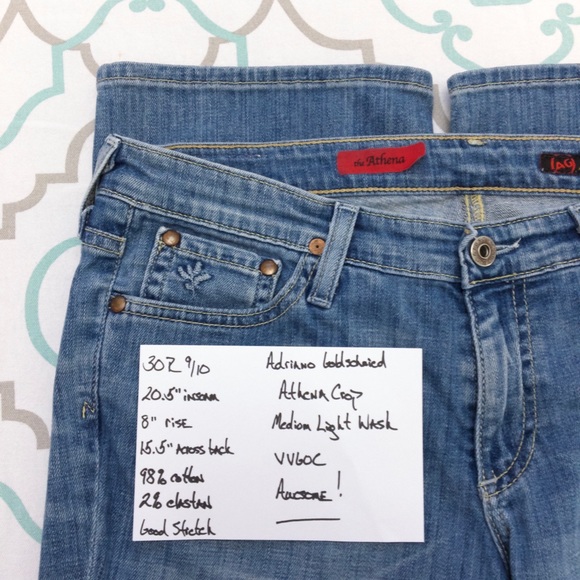 the Athena
AG
30R 9/10
20.5" inseam
8" rise
15.5" across back
98% cotton
2% elastan
Good Stretch
Adriano Goldschmied
Athena Crop
Medium Light Wash
VVGUC
Awesome!